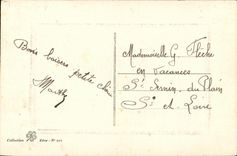 Bons baisers petite chérie
Marthe
Mademoiselle G. Flèche
en Vacances
St Sernin du Plain
Sne et Loire
Collection
Etna - N°